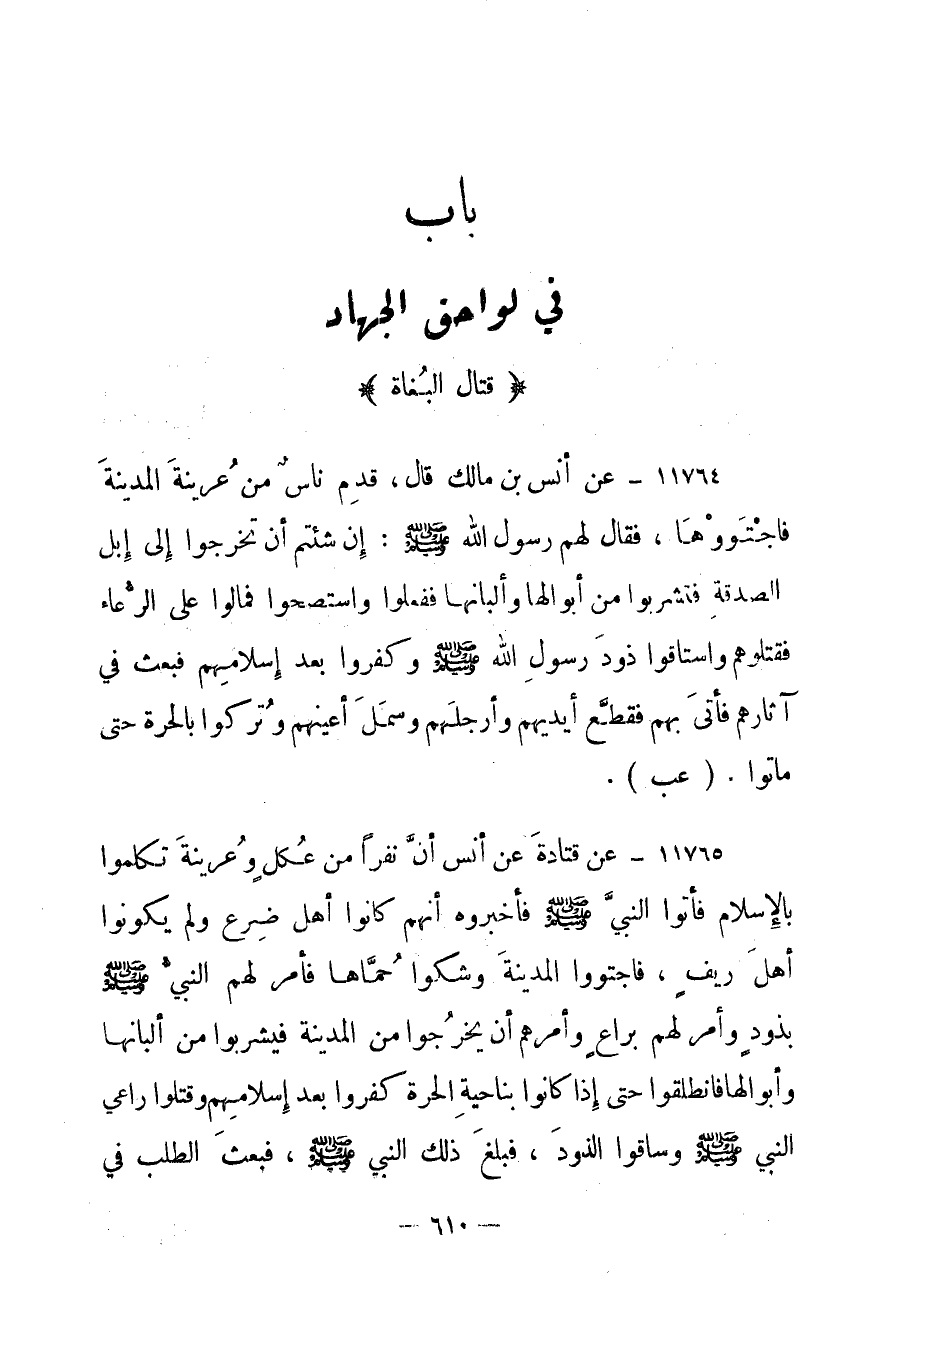 باب
في لواحق الجهاد
﴿ قتال البُغاة ﴾
١١٧٦٤ – عن أنس بن مالك قال، قدِم ناسٌ من عُرينةَ المدينةَ
فاجْتَووْهَا ، فقال لهم رسول الله ﷺ : إن شئتم أن تخرجوا إلى إبل
الصدقةِ فتشربوا من أبوالها وألبانها ففعلوا واستصحوا فمالوا على الرِّعاء
فقتلوهم واستاقوا ذودَ رسولِ الله ﷺ وكفروا بعد إسلامِهم فبعث في
آثارهم فأتىَ بهم فقطَّع أيديهم وأرجلَهم وسمَلَ أعينهم وتُركوا بالحرة حتى
ماتوا . ( عب ) .
١١٧٦٥ – عن قتادةَ عن أنس أنَّ نفراً من عُكلٍ وعُرينةَ تكلموا
بالإسلام فأتوا النبيَّ ﷺ فأخبروه أنهم كانوا أهل ضرِع ولم يكونوا
أهلَ ريفٍ ، فاجتووا المدينةَ وشكوا حُمَّاها فأمر لهم النبيُّ ﷺ
بذودٍ وأمر لهم براعٍ وأمرهم أن يخرُجوا من المدينة فيشربوا من ألبانها
وأبوالها فانطلقوا حتى إذا كانوا بناحيةِ الحرة كفروا بعد إسلامِهم وقتلوا راعي
النبي ﷺ وساقوا الذودَ ، فبلغَ ذلك النبي ﷺ ، فبعثَ الطلب في
— ٦١٠ —